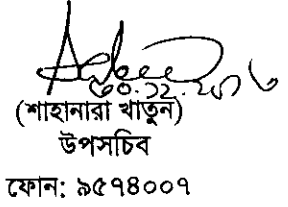 ৩০.১২.২০১৬
(শাহানারা খাতুন)
উপসচিব
ফোন: ৯৫৭৪০০৭